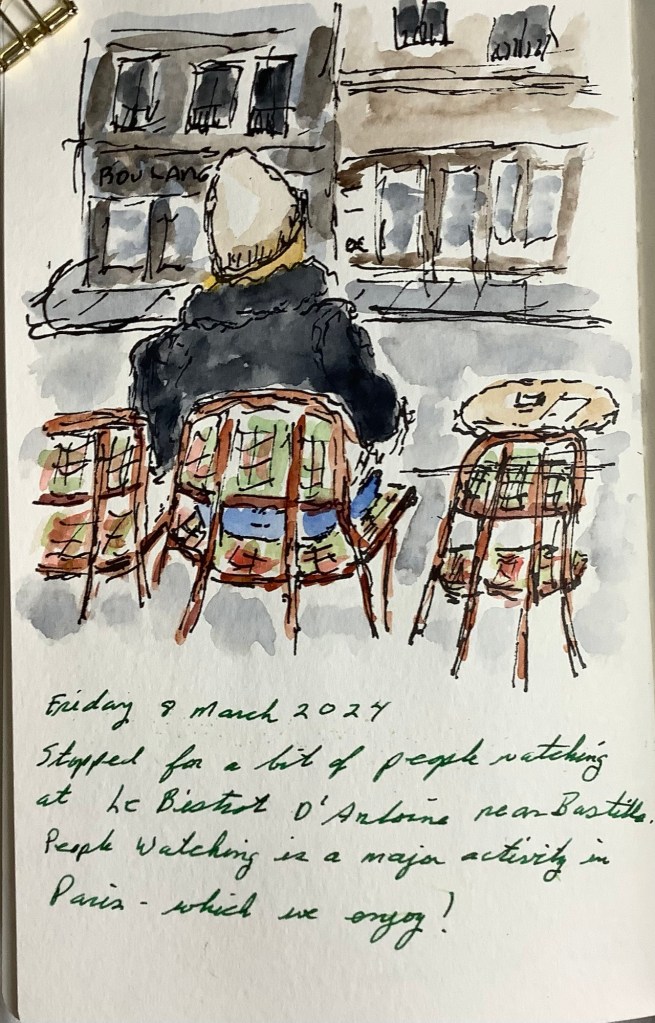 BOULANG
Friday 8 March 2024
Stopped for a bit of people watching
at Le Bistrot D'Antoine near Bastille.
People Watching is a major activity in
Paris - which we enjoy!